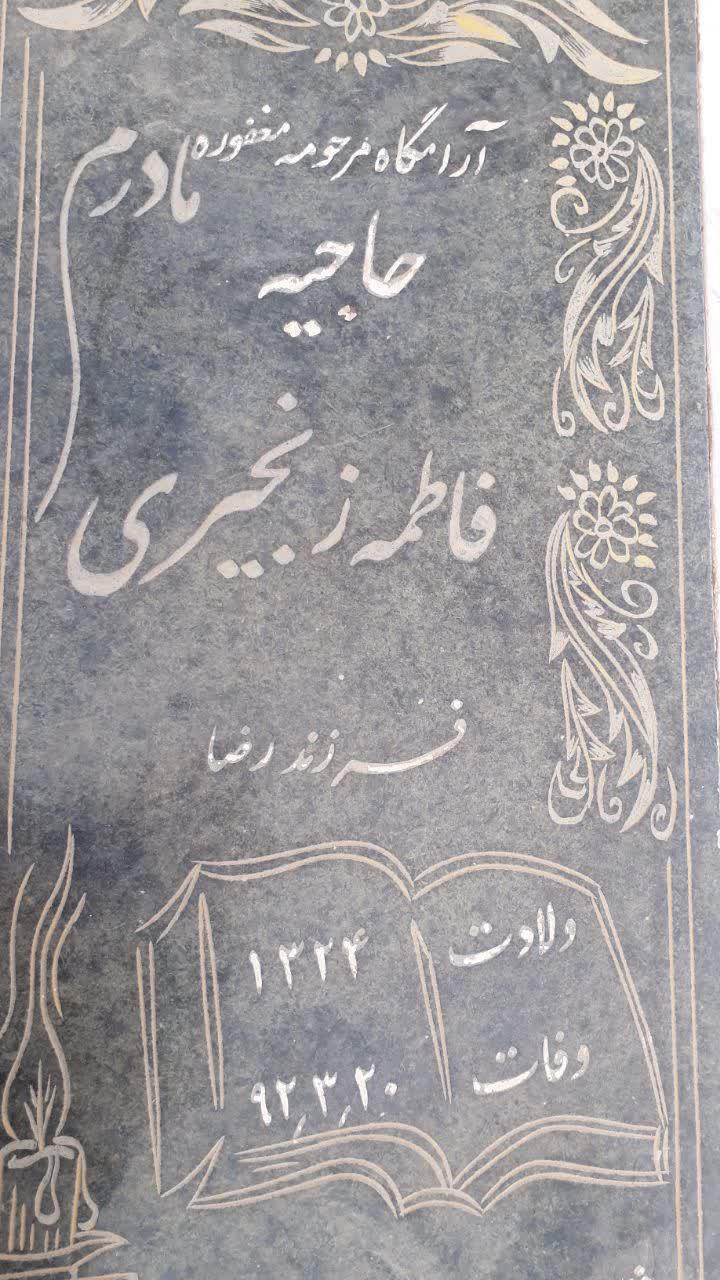 آرامگاه مرحومه مغفوره مادرم
حاجیه
فاطمه زنجیری
فرزند رضا
ولادت ۱۳۲۴
وفات ۹۲,۳,۲۰